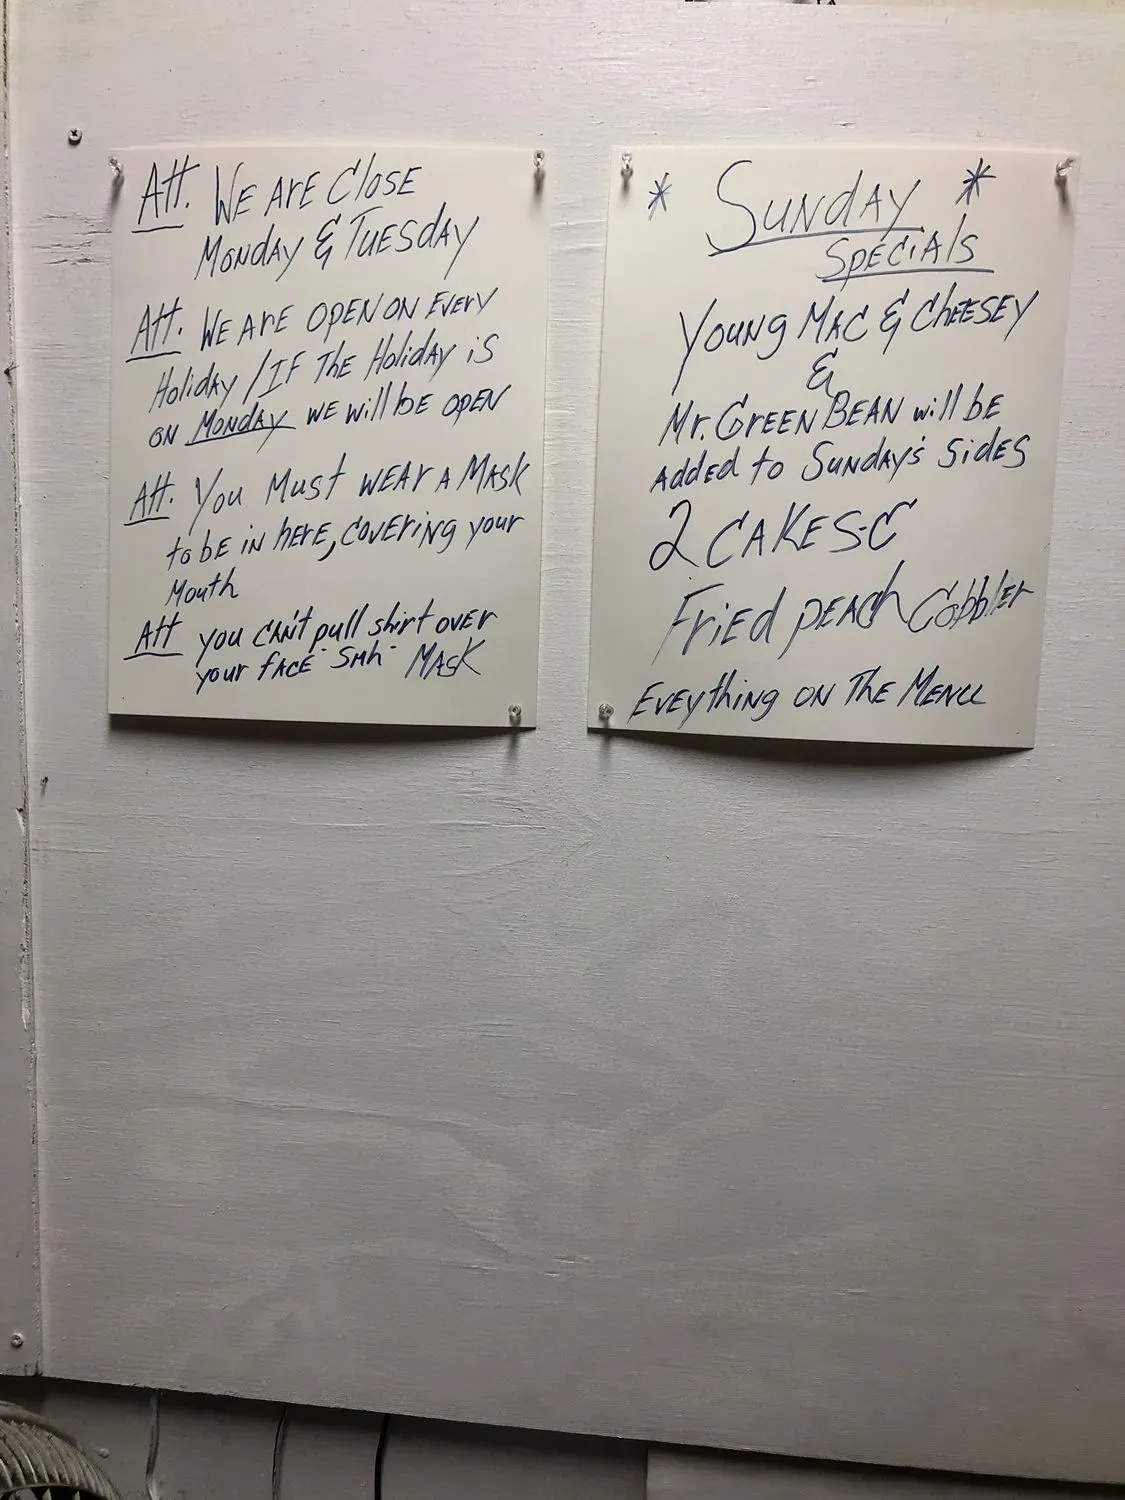 Att. WE ArE Close
Monday & Tuesday
Att. WE ArE OPEN ON EvEry
Holiday / IF The Holiday is
on Monday we will be open
Att. You Must wEAr A Mask
to be in here, covering your
Mouth
Att you can't pull shirt over
your face "Smh" Mask
* Sunday *
Specials
Young Mac & Cheesey
&
Mr. Green Bean will be
added to Sunday's sides
2 CAKES-C
Fried peach Cobbler
Eveything on The Menu